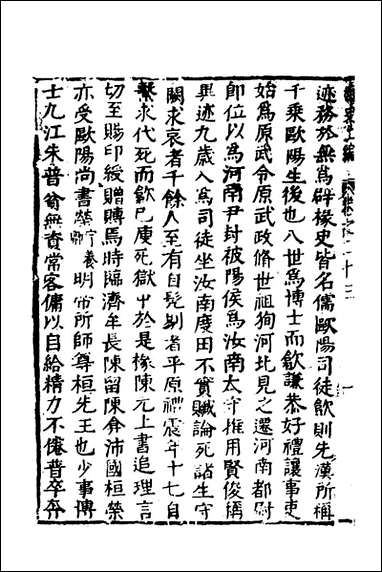 迹務於無為辟掾史皆名儒歐陽司徒歙則先漢所稱
千乘歐陽生後也八世為博士而歙謙恭好禮讓事吏
始為原武令原武政脩世祖狥河北見之遷河南都尉
即位以為河南尹封被陽侯為汝南太守推用賢俊稱
異迹九歲入為司徒坐汝南度田不實贓論死諸生守
闕求哀者千餘人至有自髡剔者平原禮震年十七自
繫求代死而歙已庾死獄中於是掾陳元上書追理言
切至賜印綬贈賻焉時臨濟牟長陳留陳弇沛國桓榮
亦受歐陽尚書榮字春卿明帝所師尊桓先王也少事博
士九江朱普貧無資常客傭以自給精力不倦普卒奔
二十三